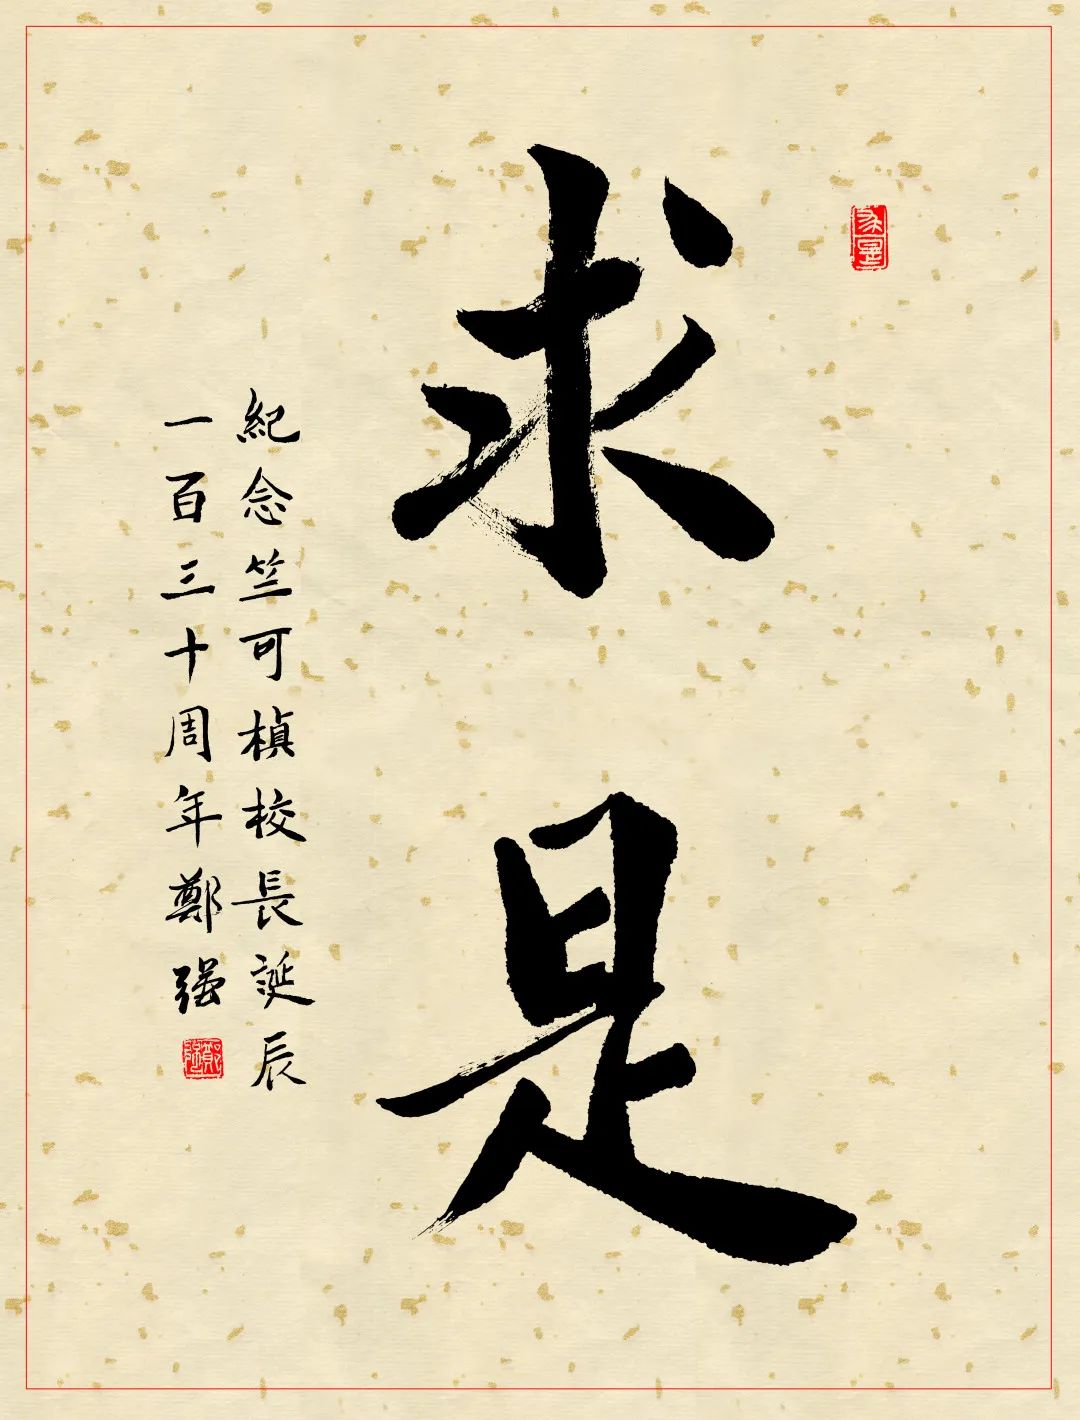 求是
紀念竺可楨校長誕辰
一百三十周年鄭强